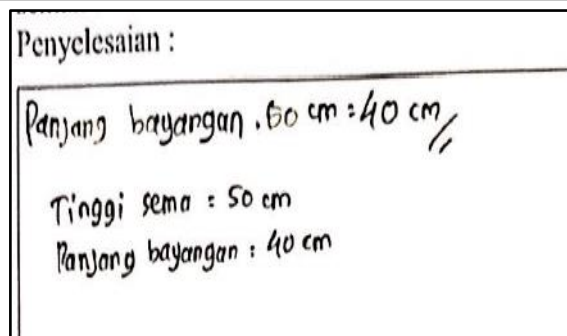 Penyelesaian :
Panjang bayangan . 60 cm = 40 cm //
Tinggi sema = 50 cm
Panjang bayangan : 40 cm